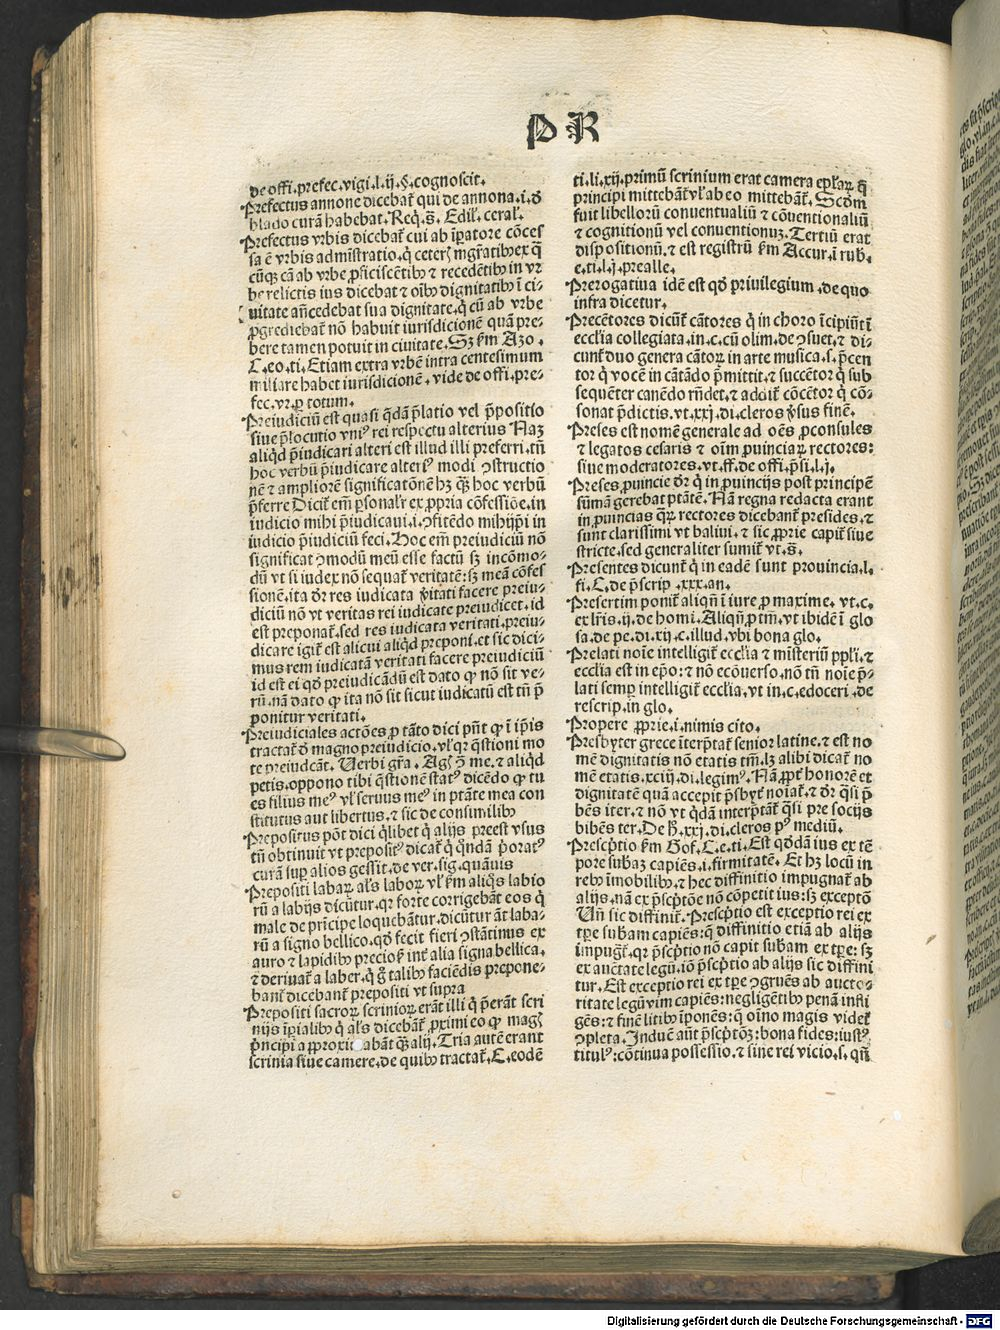 P R
de offi. prefec. vigi. l. ij. §. cognoscit.
Prefectus annone dicebat̃ qui de annona. i. đ
blado curā habebat. Req̃. s̃. Edil'. ceral'.
Prefectus vrbis dicebat̃ cui ab īpatore cōces
sa ē vrbis admīstratio. q̇ ceterꝭ mgr̄atibꝰ ex q̄
cūqꝫ cā ab vrbe ꝓficiscētibꝰ ⁊ recedētibꝰ in vr
be relictis ius dicebat ⁊ oībꝰ dignitatibꝰ ī ci⸗
uitate añcedebat sua dignitate. q̇ cū ab vrbe
ꝓgrediebat̃ nō habuit iurisdicionē quā pre⸗
bere tamen potuit in ciuitate. Sꝫ km̄ Azo.
C. eo. ti. Etiam extra vrbē intra centesimum
miliare habet iurisdicionē. vide de offi. pre⸗
fec. vr. ꝑ totum.
Preiudiciū est quasi q̄dā p̄latio vel p̄positio
siue p̄locutio vniꝰ rei respectu alterius Naꝫ
aliqđ p̄iudicari alteri est illud illi preferri. tñ
hoc verbū p̄iudicare alterꝰ modi ꝯstructio
nē ⁊ ampliorē significatōnē hꝫ q̄ꝫ hoc verbū
p̄ferre Dicit̃ em̄ ꝑsonalr̄ ex ꝓpria cōfessiōe. in
iudicio mihi p̄iudicaui. i. ꝯfitēdo mihijp̄i in
iudicio p̄iudiciū feci. Hoc em̄ preiudiciū nō
significat ꝯmodū meū esse factū sꝫ incōmo⸗
dū vt si iudex nō sequat̃ veritatē: sꝫ meā cōfes
sionē. ita đr̄ res iudicata v̄itati facere preiu⸗
diciū nō vt veritas rei iudicate preiudicet. id
est preponat̃. sed res iudicata veritati. preiu⸗
dicare igit̃ est alicui aliqđ preponi. et sic dici⸗
mus rem iudicatā veritati facere preiudiciū
id est ei qđ preiudicādū est dato ꝙ nō sit ve⸗
rū. nā dato ꝙ ita nō sit sicut iudicatū est tñ p̄
ponitur veritati.
Preiudiciales actōes ꝑ tāto dici pn̄t ꝙ ī ip̄is
tractat̃ đ magno preiudicio. vl' qꝛ q̄stioni mo
te preiudcāt. Verbi gr̄a. Agꝭ ꝯ me. ⁊ aliqđ
petis. oppono tibi q̄stionē statꝰ dicēdo ꝙ tu
es filius meꝰ vl' seruus meꝰ in ptāte mea con
stitutus aut libertus. ⁊ sic de consimilibꝰ
Prepositus pōt dici q̇libet q̇ alijs preest vsus
tñ obtinuit vt prepositꝰ dicat̃ q̇ qn̄dā p̄oratꝰ
curā sup̱ alios gessit. de ver. sig. quāuis
Prepositi labaꝝ al's laboꝝ vl' km̄ aliq̄s labio
rū a labijs dicūtur. qꝛ forte corrigebāt eos q̇
male de prīcipe loquebātur. dicūtur āt laba⸗
rū a signo bellico. qđ fecit fieri ꝯstātinus ex
auro ⁊ lapidibꝰ preciosꝭ int̃ alia signa bellica.
⁊ deriuat̃ a laber. q̇ ḡ talibꝰ faciēdis prepone⸗
bant̃ dicebant̃ prepositi vt supra
Prepositi sacroꝝ scrinioꝝ erāt illi q̇ p̄erāt scri
nijs īpialibꝰ q̇ al's dicebāt̃ ꝓximi eo ꝙ magꝭ
p̄ncipi a ꝓroxi abāt q̄ꝫ alij. Tria autē erant
scrinia siue camere. de quibꝰ tractat̃. C. eodē
ti. li. xij. primū scrinium erat camera ep̄laꝝ q̄
principi mittebāt̃ vl' ab eo mittebāt̃. Scđm
fuit libelloru conuentualiū ⁊ cōuentionaliū
⁊ cognitionū vel conuentionuꝫ. Tertiū erat
dispositionū. ⁊ est registrū km̄ Accur. ī rub.
e. ti. l. j. prealle.
Prerogatiua idē est qđ priuilegium. de quo
infra dicetur.
Precētores dicūt̃ cātores q̇ in choro īcipiūt ī
ecclīa collegiata. in. c. cū olim. de ꝯsuet. ⁊ di⸗
cunt̃ duo genera cātoꝝ in arte musica. s. p̄cen
tor q̇ vocē in cātādo p̄mittit. ⁊ succētor q̇ sub
sequēter canēdo rn̄det. ⁊ addit̃ cōcētor q̇ cō⸗
sonat p̄dictis. vt. xxj. di. cleros v̄sus finē.
Preses est nomē generale ad oēs ꝓconsules
⁊ legatos cesaris ⁊ oīm ꝓuinciaꝝ rectores:
siue moderatores. vt. ff. de offi. p̄si. l. j.
Preses ꝓuincie đr̄ q̇ in ꝓuincijs post principē
sūmā gerebat ptātē. Nā regna redacta erant
in ꝓuincias q̄ꝝ rectores dicebant̃ presides. ⁊
sunt clarissimi vt baliui. ⁊ sic ꝓprie capit̃ siue
stricte. sed generaliter sumit̃ vt. s̃.
Presentes dicunt̃ q̇ in eadē sunt prouincia. l.
fi. C. de p̄scrip. xxx. an.
Presertim ponit̃ aliqn̄ ī iure ꝓ maxime. vt. c.
ex lr̄is. ij. de homi. Aliqn̄ ꝓ tm̄. vt ibidē ī glo
sa. de pe. di. xij. c. illud. vbi bona glo.
Prelati noīe intelligit̃ eccl'ia ⁊ mīsteriū ppl'i. ⁊
eccl'ia est in ep̄o: ⁊ nō ecōuerso. nō tñ noīe p̄⸗
lati semp̱ intelligit̃ eccl'ia. vt in. c. edoceri. de
rescrip. in glo.
Propere ꝓprie. i. nimis cito.
Presbyter grece īterp̄tat̃ senior latine. ⁊ est no
mē dignitatis nō etatis tm̄. lꝫ alibi dicat̃ no
mē etatis. xciij. di. legimꝰ. Nā ꝓpt̃ honorē et
dignitatē quā accepit p̄sbyt̃ noīat̃. ⁊ đr̄ q̄si p̄
bēs iter. ⁊ nō vt q̇dā interp̄tāt̃ q̄si pre socijs
bibēs ter. De h̄. xxj. di. cleros pꝰ mediū.
Prescp̄tio km̄ Gof. C. e. ti. Est qđdā ius ex tē
pore subaꝫ capiēs. i. firmitatē. Et hꝫ locū in
rebꝰ īmobilibꝰ. ⁊ hec diffinitio impugnat̃ ab
alijs. nā ex p̄scp̄tōe nō cōpetit ius: sꝫ exceptō
Vn̄ sic diffinit̃. Prescp̄tio est exceptio rei ex
tp̄e subam capiēs: q̄ diffinitio etiā ab alijs
impugt̃. qꝛ p̄scp̄tio nō capit subam ex tp̄e: sꝫ
ex auctate legū. iō p̄scp̄tio ab alijs sic diffini
tur. Est exceptio rei ex tp̄e ꝯgruēs ab aucto⸗
ritate legū vim capiēs: negligētibꝰ penā infli
gēs: ⁊ finē litibꝰ īponēs: q̄ oīno magis videt̃
ꝯpleta. Induc̄ aūt p̄scp̄tōꝫ: bona fides: iustꝰ
titulꝰ: cōtinua possessio. ⁊ sine rei vicio. s. qn̄
Digitalisierung gefördert durch die Deutsche Forschungsgemeinschaft - DFG